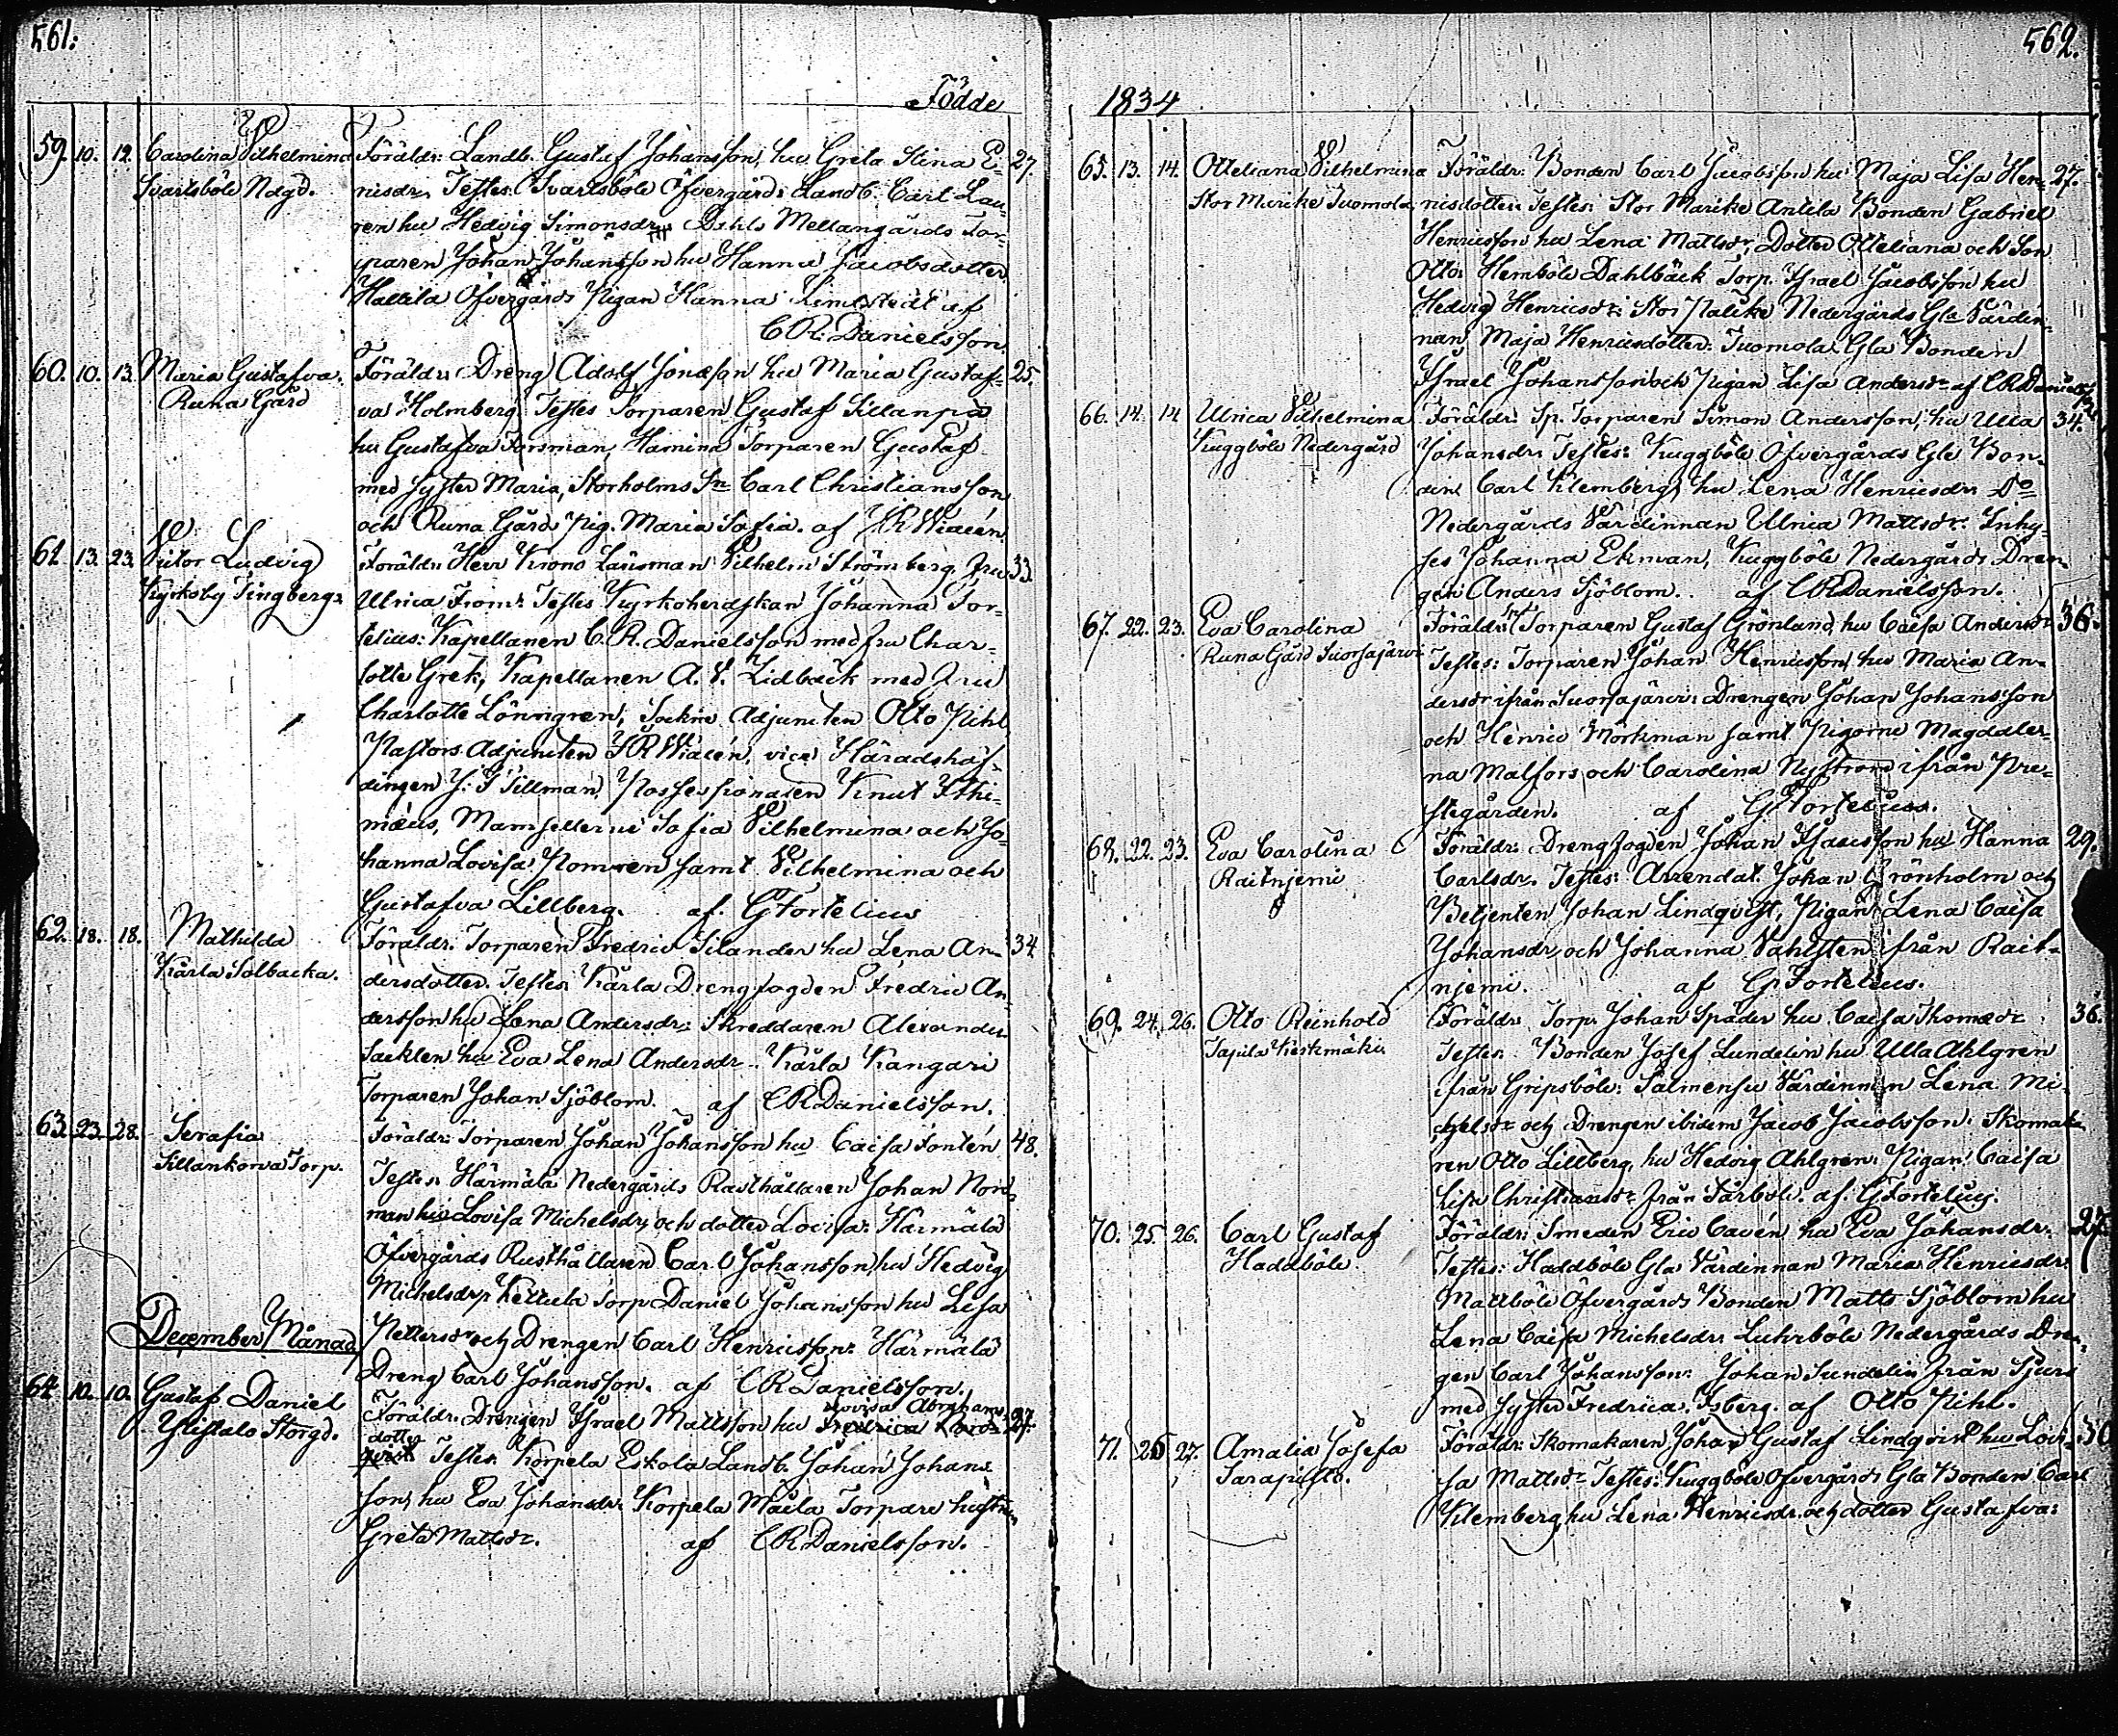 561.
Födde
59. 10. 12. Carolina Vilhelmina Föräldr: Landb. Gustaf Johansson, hu Greta Stina E- 27.
Svartsböle Ndgd. ricsdr. Testes: Svartsböle Öfvergårds Landb. Carl Lau-
ren hu Hedvig Simonsdr. Dahls Mellangårds Tor-
paren Johan Johansson hu Hanna Jacobsdotter
Hallila Öfvergårds Pigan Hanna Lindstedt af
C R. Danielsson.
60. 10. 13. Maria Gustafva. Föräldr: Dreng Adolf Jonasson hu Maria Gustaf- 25.
Runa Gård va Holmberg. Testes Torparen Gustaf Sillanpä
hu Gustafva Forsman, Hamina Torparen Gustaf
med syster Maria, Storholms Sn Carl Christiansson
och Runa Gårds Pig. Maria Sofia. af
61 13. 23. Victor Ludvig Föräldr: Herr Krono Länsman Vilhelm Strömberg, Fru 33.
Kyrkoby Tingberga Ulrica From: Testes Kyrkoherdskan Johanna For-
telius: Kapellanen C. R. Danielsson med fru Char-
lotte Grek, Kapellanen A. V. Lidbäck med Fru
Charlotte Lönngren, Sockne Adjuncten Otto Pihl,
Pastors Adjuncten vice Häradshöf-
dingen J. G Tillman, Possessionaten Knut
mæus, Mamsellerne Sofia Vilhelmina och Jo-
hanna Lovisa samt Vilhelmina och
Gustafva Lillberg. af. G Fortelius
62. 18. 18. Mathilda Föräldr. Torparen Fredric Silander hu Lena An- 34
Kårla Solbacka. dersdotter. Testes: Kårla Drengfogden Fredric An-
dersson hu Lena Andersdr: Skreddaren Alexander
Saeklen hu Eva Lena Andersdr.. Kårla Kangari
Torparen Johan Sjöblom. af C R Danielsson.
63. 23. 28. Serafia Föräldr: Torparen Johan Johansson hu Caisa Fontén 48.
Sillankorva Torp. Testes: Härmälä Nedergårds Rusthållaren Johan Nord-
man hu Lovisa Michelsdr. och dotter Lovisa: Härmälä
Öfvergårds Rusthållaren Carl Johansson, hu Hedvig
Michelsdr, Kettula Torp. Daniel Johansson hu Lisa
December Månad Pettersdr och Drengen Carl Henricsson: Härmälä
Dreng Carl Johansson. af C R Danielsson.
Lovisa Abrahams
64. 10. 10. Gustaf Daniel Föräldr. Drengen Israel Mattsson hu Fredrica 27.
dotter
Ylistalo Storgd. qvist Testes: Korpela Eskola Landb. Johan Johans-
son, hu Eva Johansdr: Korpela Maila Torpare hustrun
Greta Mattsdr. af C R Danielsson.
562.
1834
65. 13. 14. Otteliana Vilhelmina Föräldr: Bonden Carl Jacobsson hu Maja Lisa Hen- 27.
Stor Marike Tuomola, ricsdotter. Testes: Stor Marike Antila Bonden Gabriel
Henricsson hu Lena Mattsdr, Dotter Otteliana och Son
Otto: Hemböle Dahlbäck Torp. Israel Jacobsson hu
Hedvig Henricsdr: Stor Nedergårds Gla Värdin-
nan Maja Henricsdotter. Tuomola Gla Bonden
Israel Johansson och Pigan Lisa Andersdr af C R Danielsson
66. 14. 14 Ulrica Vilhelmina Föräldr: Sp. Torparen Simon Andersson, hu Ulla 34.
Kuggböle Nedergård Johansdr. Testes: Kuggböle Öfvergårds Gle Bon-
den Carl Klemberg, hu Lena Henricsdr. Do
Nedergårds Värdinnan Ulrica Mattsdr: Inhy-
ses Johanna Ekman, Kuggböle Nedergårds Dren-
gen Anders Sjöblom. af C R Danielsson.
67. 22. 23. Eva Carolina Föräldr: Torparen Gustaf Grönland hu Caisa Andersdr 36.
Runa Gård Suorsajärvi Testes: Torparen Johan Henricsson, hu Maria An-
dersdr ifrån Suorsajärvi: Drengen Johan Johansson
och Henric Mörkman samt Pigorne Magdale-
na Malfors och Carolina Nyström ifrån Pre-
stegården. af G Fortelius.
68. 22. 23. Eva Carolina Föräldr: Drengfogden Johan Isacsson hu Hanna 29.
Raitnjemi Carlsdr. Testes: Arrendat. Johan Grönholm och
Betjenten Johan Lindqvist, Pigan Lena Caisa
Johansdr, och Johanna Vahlsten ifrån Rait-
njemi. af G Fortelius.
69. 24. 26. Otto Reinhold Föräldr. Torp. Johan Spader hu Caisa Thomasdr 36.
Tapila Keskmäki. Testes: Bonden Josef Lundelin hu Ulla Ahlgren
ifrån Gripsböle: Salmensu Värdinnan Lena Mi-
chelsdr och Drengen ibidem Jacob Jacobsson. Skomaka-
ren Otto Lillberg, hu Hedvig Ahlgren: Pigan Caisa
Lisa Christiansdr från af. G Fortelius.
70. 25. 26. Carl Gustaf Föräldr: Smeden Eric Cavén hu Eva Johansdr. 27
Haddböle. Testes: Haddböle Gla Värdinnan Maria Henricsdr:
Mattböle Öfvergårds Bonden Matts Sjöblom hu
Lena Caisa Michelsdr: Luhrböle Nedergårds Dren-
gen Carl Johansson: Johan Sundelin från Tjurs
med syster Fredrica Isberg. af Otto Pihl.
71. 26 27. Amalia Josefa Föräldr: Skomakaren Johan Gustaf Lindqvist hu Lovi- 30
Sarapisto. sa Mattsdr Testes: Kuggböle Öfvergårds Gla Bonden Carl
Klemberg hu Lena Henricsdr. och dotter Gustafva: